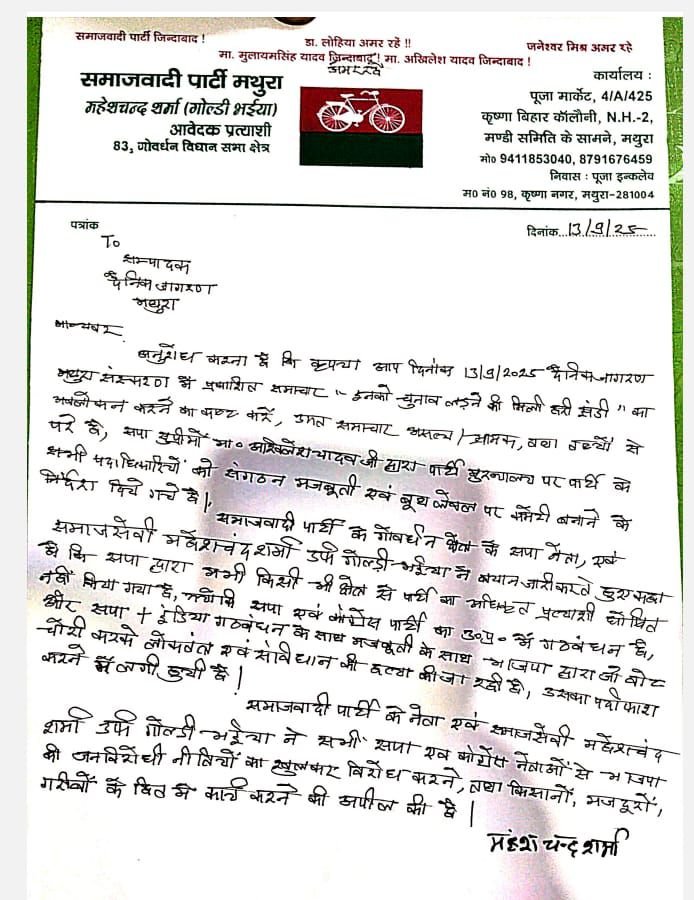 समाजवादी पार्टी जिन्दाबाद !
डा. लोहिया अमर रहें !!
जनेश्वर मिश्र अमर रहे
मा. मुलायमसिंह यादव जिन्दाबाद ! मा. अखिलेश यादव जिन्दाबाद !
अमर रहे
समाजवादी पार्टी मथुरा
महेशचन्द शर्मा (गोल्डी भईया)
आवेदक प्रत्याशी
83, गोवर्धन विधान सभा क्षेत्र
कार्यालय :
पूजा मार्केट, 4/A/425
कृष्णा बिहार कॉलौनी, N.H.-2,
मण्डी समिति के सामने, मथुरा
मो० 9411853040, 8791676459
निवास : पूजा इन्कलेव
म० नं० 98, कृष्णा नगर, मथुरा-281004
पत्रांक
दिनांक...13/9/25
To
सम्पादक
दैनिक जागरण
मथुरा
मान्यवर
अनुरोध करना है कि कृपया आप दिनांक 13/9/2025 दैनिक जागरण
मथुरा संस्करण में प्रकाशित समाचार "इनको चुनाव लड़ने की मिली हरी झंडी" का
अवलोकन करने का कष्ट करें, उक्त समाचार असत्य / भ्रामक, तथा तथ्यों से
परे है, सपा सुप्रीमों मा० अखिलेश यादव जी द्वारा पार्टी मुख्यालय पर पार्टी के
सभी पदाधिकारियों को संगठन मजबूती एवं बूथ लेबल पर कमेटी बनाने के
निर्देश दिये गये है।
समाजवादी पार्टी के गोवर्धन क्षेत्र के सपा नेता, एवं
समाजसेवी महेशचंद शर्मा उर्फ गोल्डी भईया ने बयान जारी करते हुए कहा
है कि सपा द्वारा अभी किसी भी क्षेत्र से पार्टी का अधिकृत प्रत्याशी घोषित
नहीं किया गया है, क्योंकि सपा एवं कांग्रेस पार्टी का उ०प्र० में गठबंधन है,
और सपा + इंडिया गठबंधन के साथ मजबूती के साथ भाजपा द्वारा जो वोट
चोरी करके लोकतंत्र एवं संविधान की हत्या की जा रही है, उसका पर्दाफाश
करने में लगी हुयी है।
समाजवादी पार्टी के नेता एवं समाजसेवी महेशचंद
शर्मा उर्फ गोल्डी भईया ने सभी सपा एवं कांग्रेस नेताओं से भाजपा
की जनविरोधी नीतियों का खुलकर विरोध करने, तथा किसानों, मजदूरों,
गरीबों के हित में कार्य करने की अपील की है।
महेश चन्द शर्मा